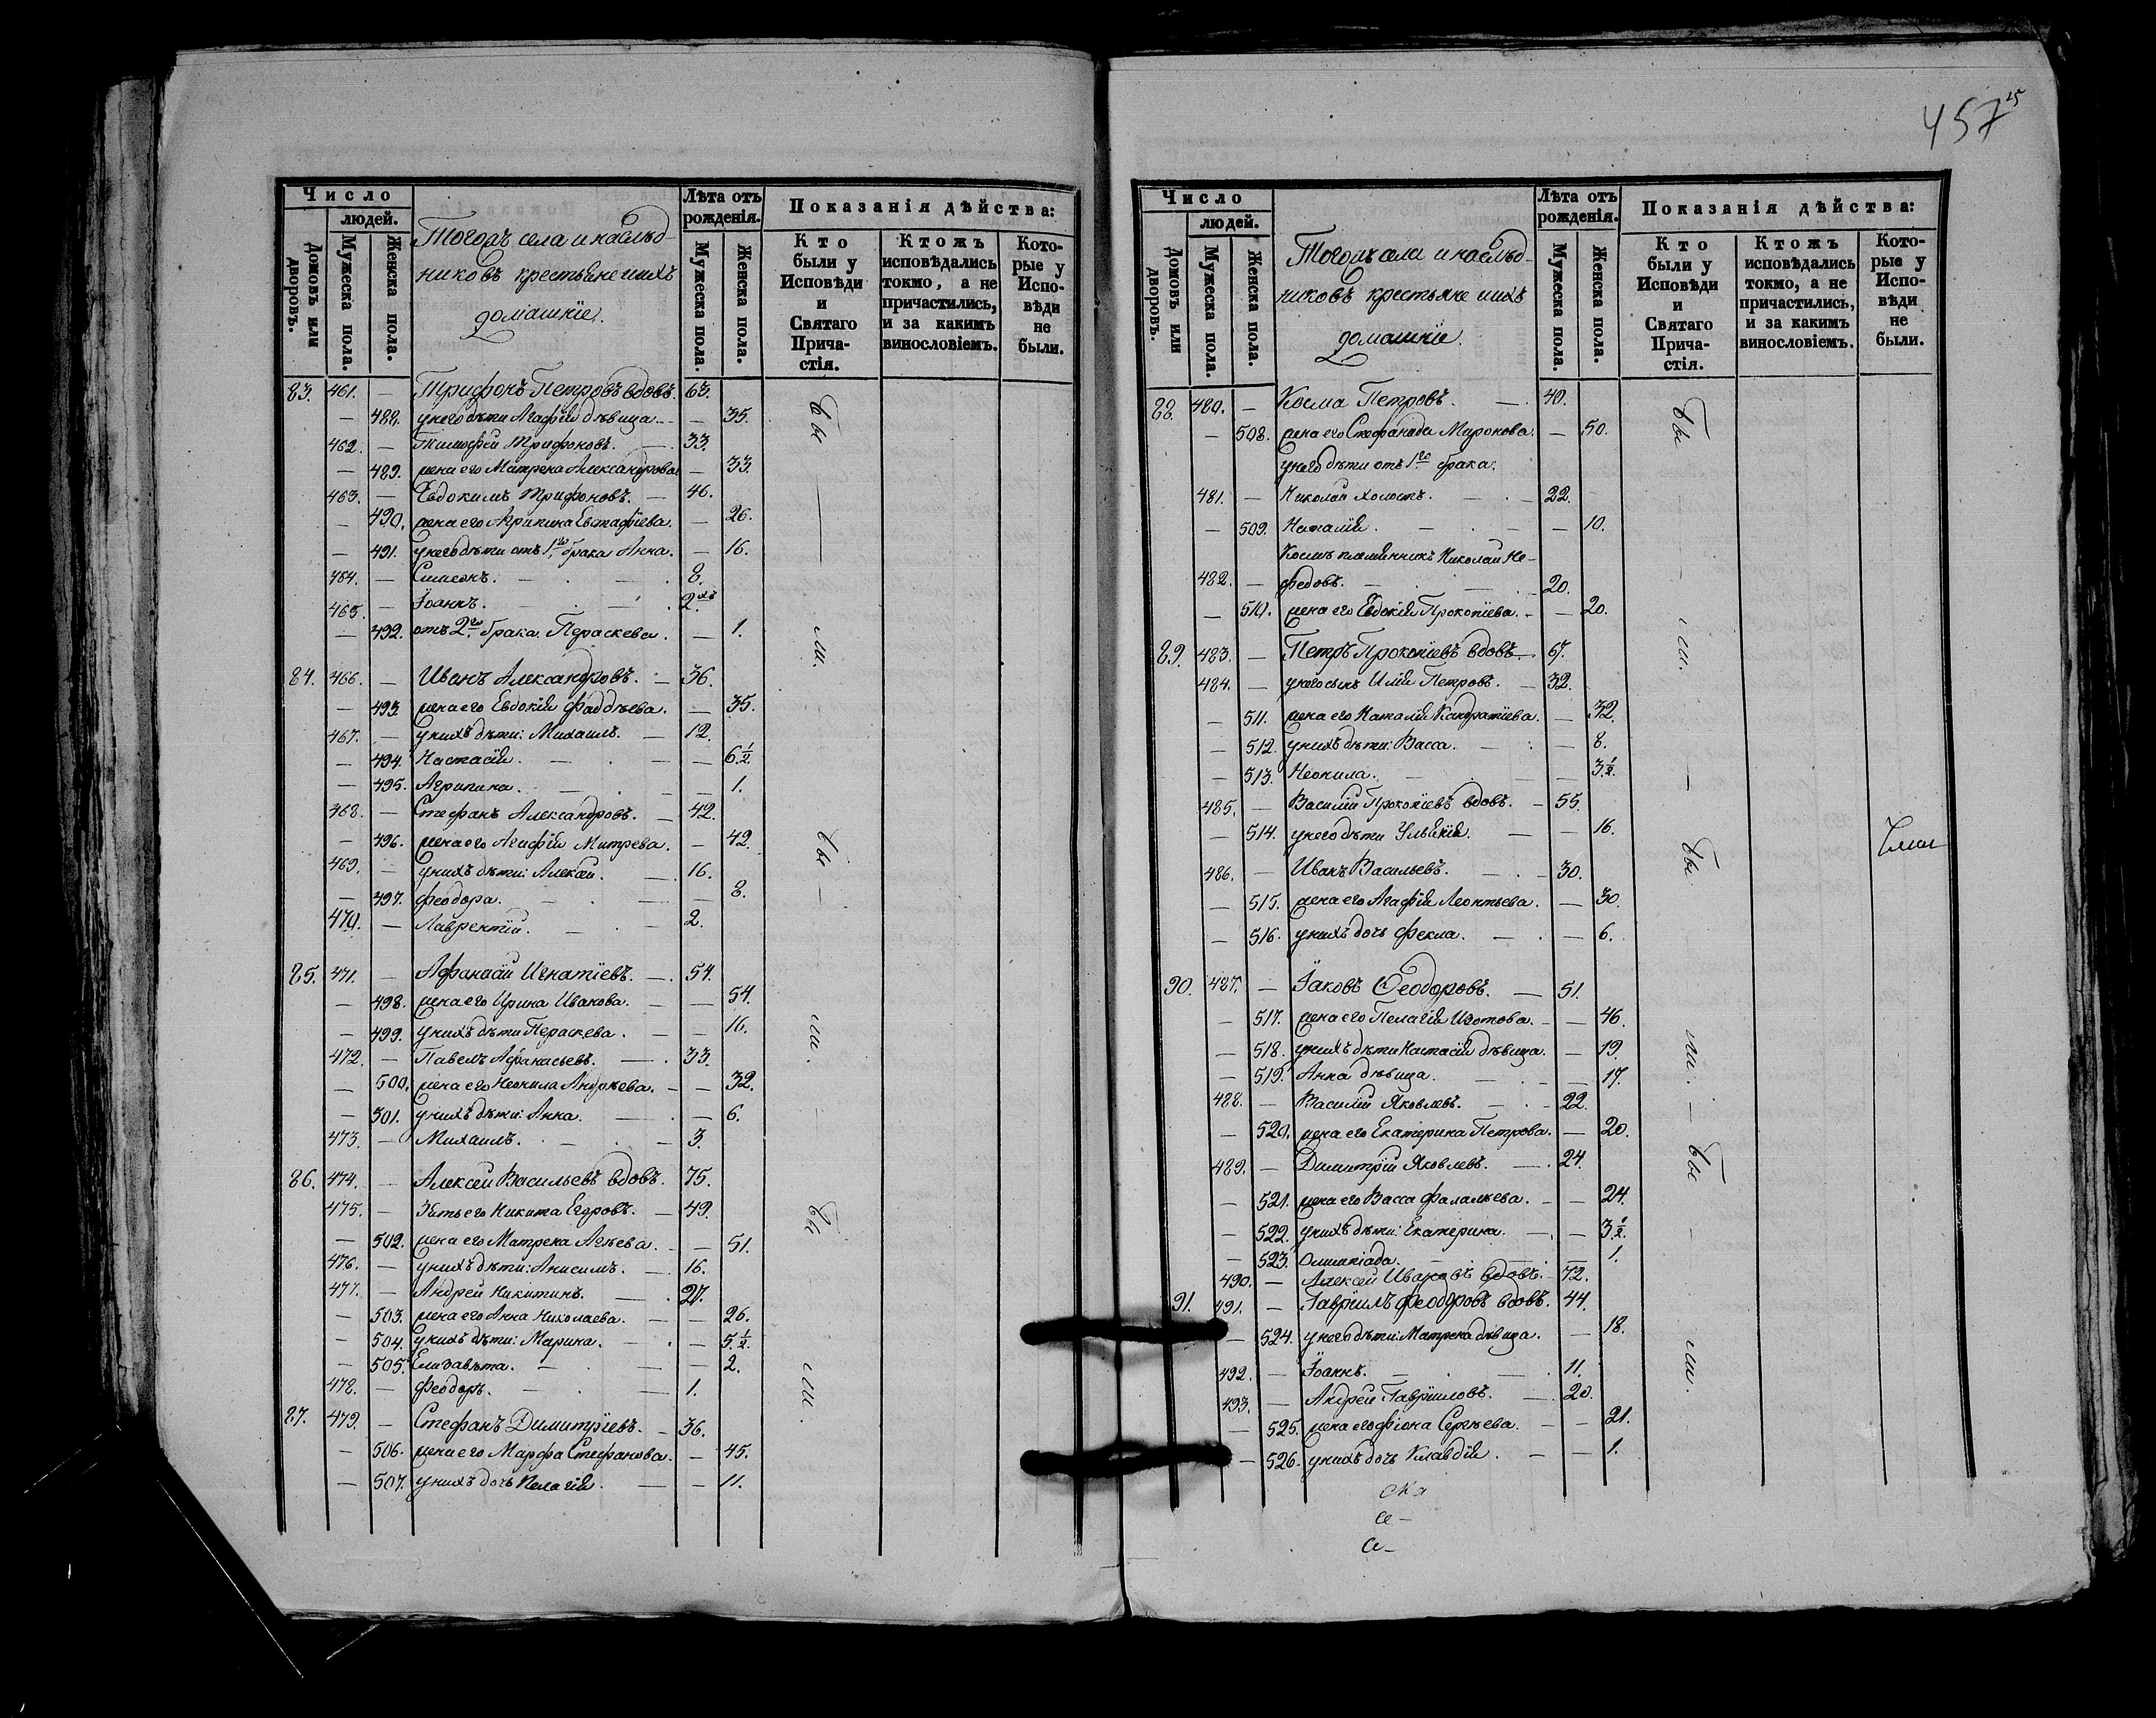 457 25
Число
людей.
Домовъ или дворовъ.
Мужеска пола.
Женска пола.
Тогожъ села и наслѣд-
никовъ крестьяне и ихъ
домашніе.
Лѣта отъ рожденія.
Мужеска пола.
Женска пола.
Показанія дѣйства:
Кто были у Исповѣди и Святаго Прича-стія.
Ктожъ исповѣдались токмо, а не причастились, и за какимъ винословіемъ.
Кото-рые у Испо-вѣди не были.
83. 461. — Трифонъ Петровъ вдовъ. 63.
— 488. у него дѣти Агафія дѣвица. — 35.
462. — Тимофей Трифоновъ. — 33.
— 489. жена его Матрена Александрова — 33.
463. — Евдокимъ Трифоновъ. — 46.
— 490. жена его Агрипина Евстафіева. — 26.
— 491. у него дѣти отъ 1го брака Анна. — 16.
464. — Симеонъ. — 8.
465. — Іоаннъ. 2хъ
— 492. отъ 2го брака Параскева. — 1.
84. 466. — Иванъ Александровъ. — 36.
— 493 жена его Евдокія Фаддѣева. — 35.
467. — у нихъ дѣти: Михаилъ. — 12.
— 494. Настасія. — — 6 1/2.
— 495. Агрипина. — 1.
468. — Стефанъ Александровъ. — 42.
— 496. жена его Агафія Митрева. — 42.
469. — у нихъ дѣти: Алексѣй. — 16.
— 497. Феодора. — — 8.
470. — Лаврентій. — 2.
85. 471. — Афанасій Игнатіевъ. — 54.
— 498. жена его Ирина Иванова. — — 54.
— 499. у нихъ дѣти Параскева. — — 16.
472. — Павелъ Афанасьевъ. — 33.
— 500. жена его Неонила Андрѣева. — — 32.
— 501. у нихъ дѣти: Анна. — — 6.
473. — Михаилъ. — 3.
86. 474. — Алексей Васильевъ вдовъ. 75.
475. — Зять его Никита Егоровъ. — 49.
— 502. жена его Матрена Агѣева. — — 51.
476. — у нихъ дѣти: Анисимъ. — 16.
477. — Андрей Никитинъ. — 27.
— 503. жена его Анна Николаева. — — 26.
— 504. у нихъ дѣти: Марина. — 5 1/2.
— 505. Елизавѣта. — — 2.
478. — Феодоръ. — 1.
87. 479. — Стефанъ Димитріевъ. — 36.
— 506. жена его Марфа Стефанова. — 45.
— 507. у нихъ дочь Пелагія. — — 11.
бы — ли.
бы — ли. —
бы ли.
Число
людей.
Домовъ или дворовъ.
Мужеска пола.
Женска пола.
Тогожъ села и наслѣд-
никовъ крестьяне и ихъ
домашніе.
Лѣта отъ рожденія.
Мужеска пола.
Женска пола.
Показанія дѣйства:
Кто были у Исповѣди и Святаго Прича-стія.
Ктожъ исповѣдались токмо, а не причастились, и за какимъ винословіемъ.
Кото-рые у Испо-вѣди не были.
88. 480. — Косма Петровъ. — 40.
— 508. жена его Стефанида Миронова. — 50.
у него дѣти отъ 1го брака:
481. — Николай холостъ. — 22.
— 509. Наталія. — — 10.
Космы племянникъ Николай Не-
482. — федовъ. — 20.
— 510. жена его Евдокія Прокопіева. — — 20.
89. 483. — Петръ Прокопіевъ вдовъ. — 67.
484. — у него сынъ Илія Петровъ. — 32.
— 511. жена его Наталія Кандратіева. — 32.
— 512. у нихъ дѣти: Васса. — — 8.
— 513. Неонила. — — 3 1/2.
485. — Василій Прокопіевъ вдовъ. — 55.
— 514. у него дѣти Ульянія. — — 16.
486. — Иванъ Васильевъ. — 30.
— 515. жена его Агафія Леонтьева. — 30.
— 516. у нихъ дочь Фекла. — — 6.
90. 487. — Іаковъ Феодоровъ. — 51.
— 517. жена его Пелагія Изотова. — — 46.
— 518. у нихъ дѣти Настасія дѣвица. — 19.
— 519. Анна дѣвица. — — 17.
488. — Василій Яковлевъ. — 22.
— 520. жена его Екатерина Петрова. — 20.
489. — Димитрій Яковлевъ. — 24.
— 521. жена его Васса Фалалѣева. — — 24.
— 522. у нихъ дѣти: Екатерина. — — 3 1/2.
— 523. Олимпіада. — — 1.
490. — Алексей Ивановъ вдовъ. 72.
91. 491. — Гавріилъ Феодоровъ вдовъ. 44.
— 524. у него дѣти: Матрена дѣвица. — 18.
492. — Іоаннъ. — 11.
493. — Андрей Гавріиловъ. — 20.
— 525. жена его Фіона Сергѣева. — — 21.
— 526. у нихъ дочь Клавдія. — — 1.
бы — ли. —
бы. — ли. —
бы — ли.